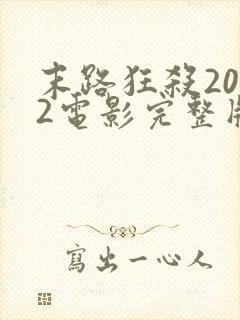 末路狂殺20
2電影完整版
寫出一心人